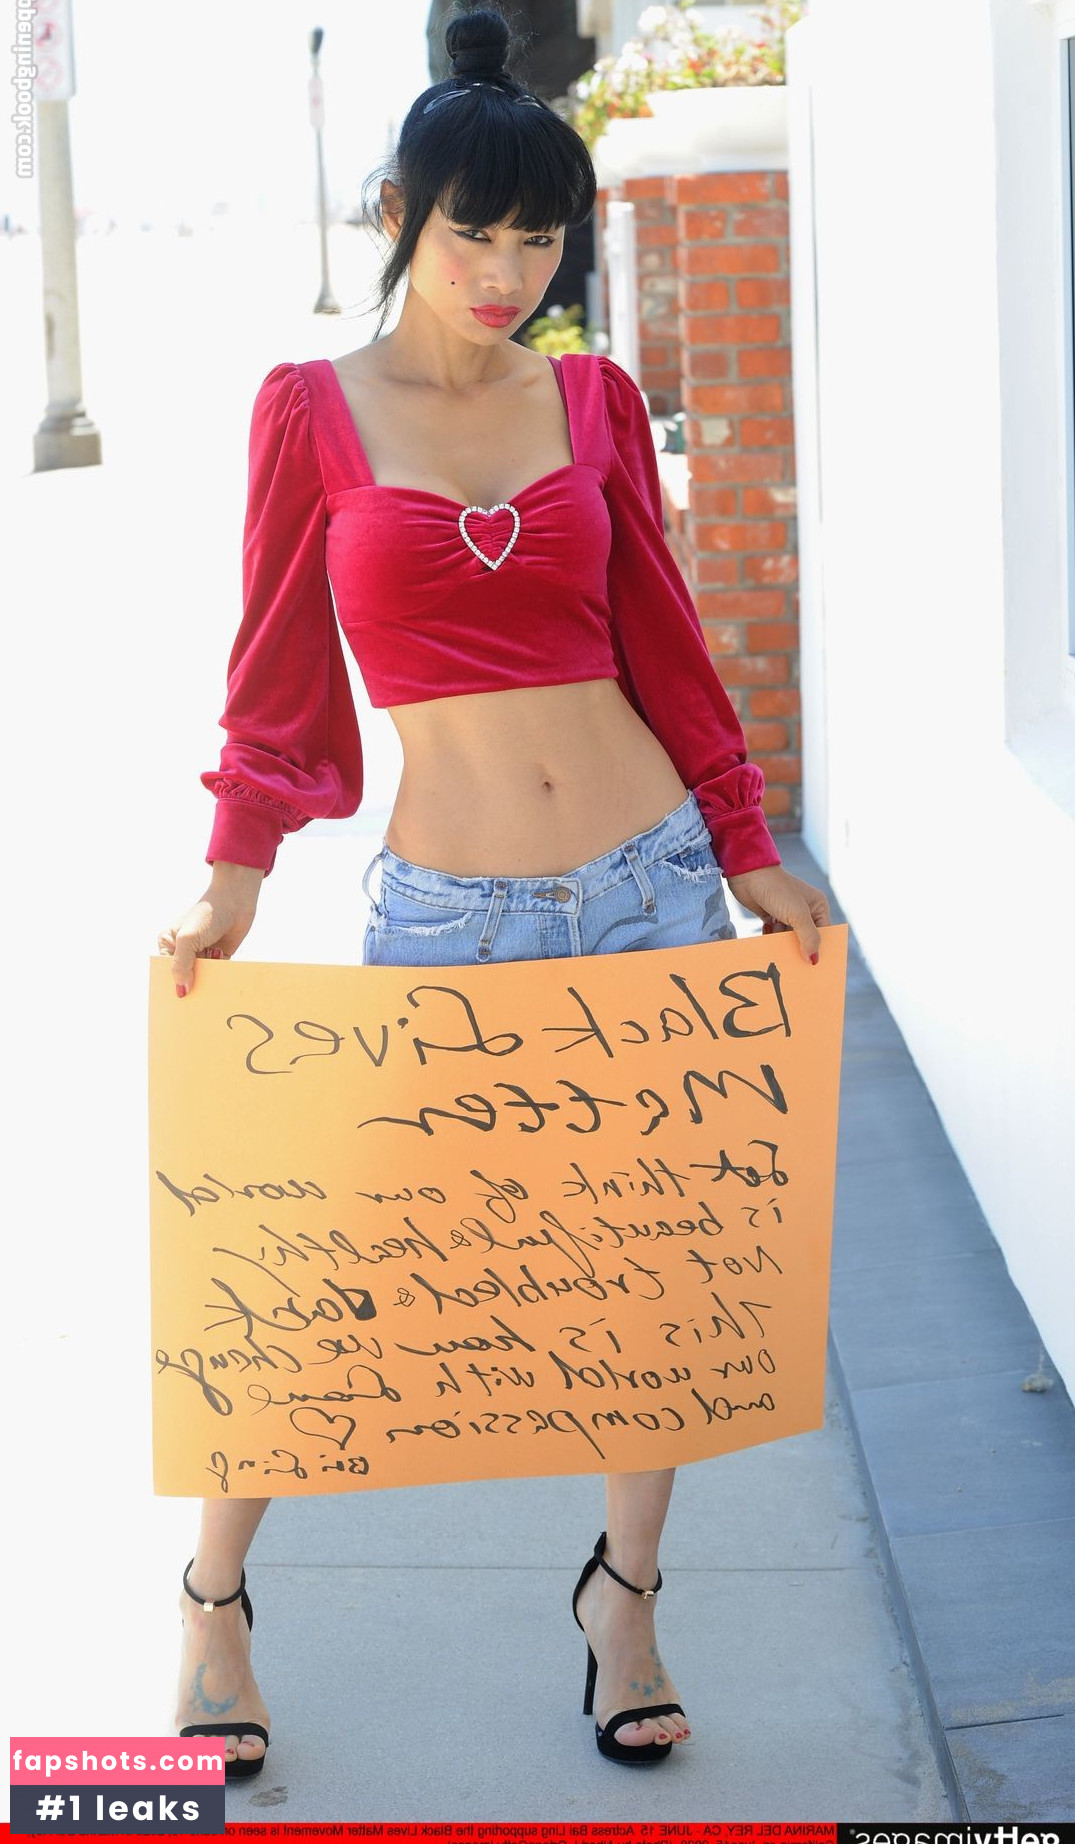 openingbook.com
Black Lives
Matter
Let think of our world
is beautiful & healthy
Not troubled & dark
This is how we change
our world with Love
and compassion ♡
Bai Ling
fapshots.com
#1 leaks
MARINA DEL REY, CA - JUNE 15: Actress Bai Ling supporting the Black Lives Matter Movement is seen on
gettyimages®